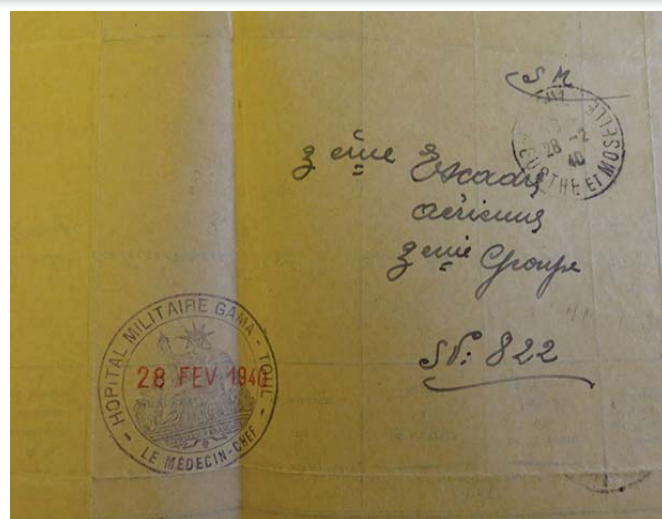 S M
28 -2
40
MEURTHE ET MOSELLE
3 eme Escadre
aérienne
3 eme Groupe
SP: 822
HOPITAL MILITAIRE GAMA - TOUL -
28 FEV 1940
LE MÉDECIN-CHEF